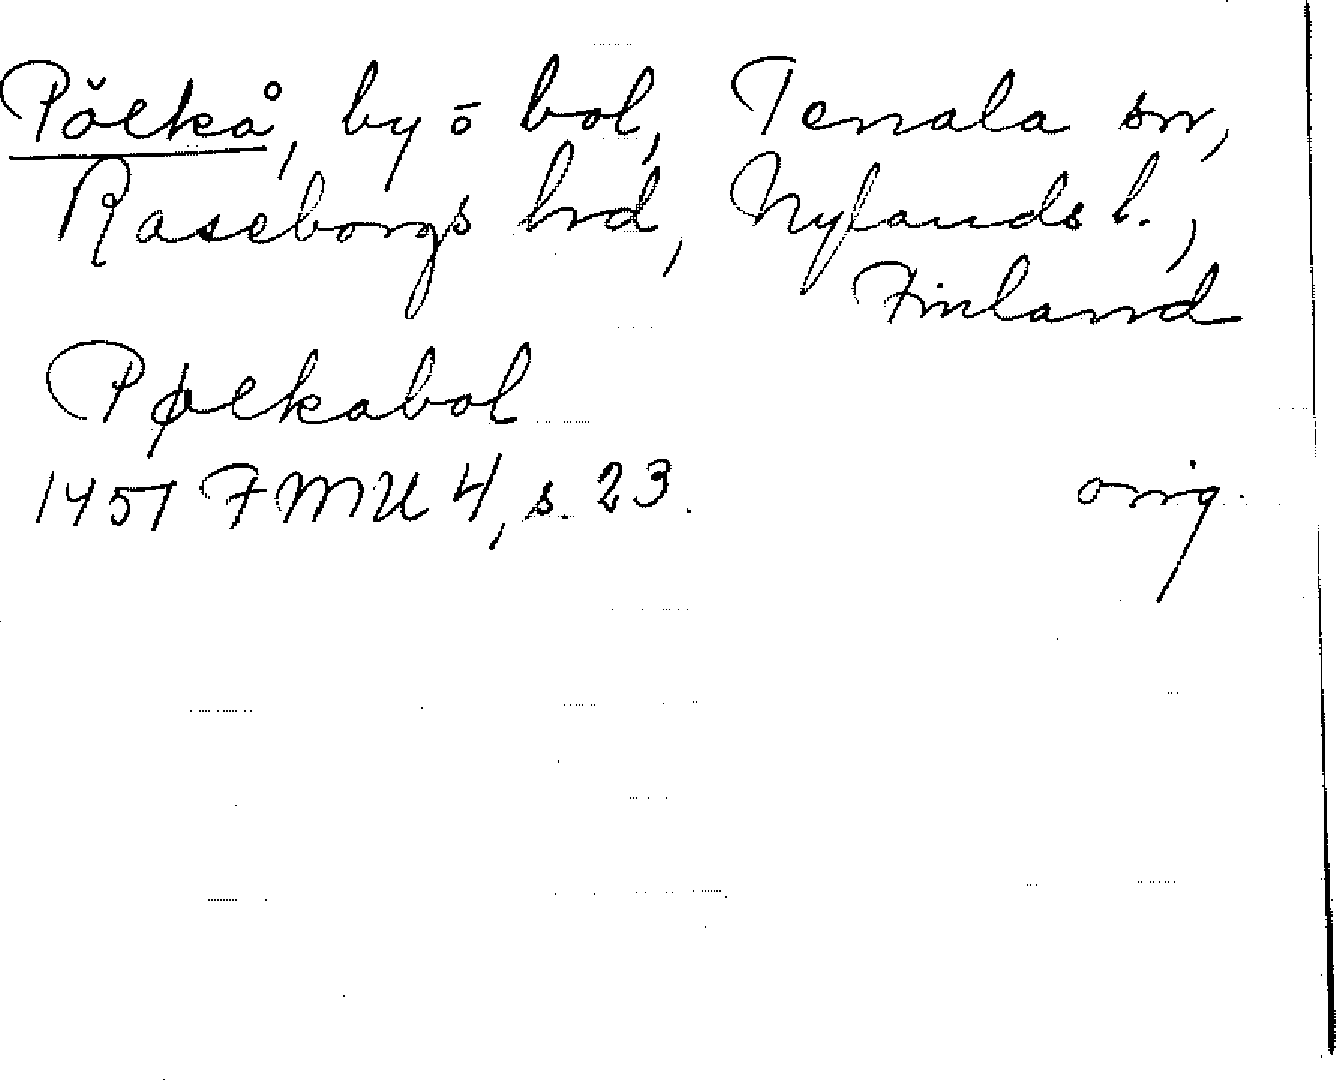 Pölkå, by ō bol, Tenala sn,
Raseborgs hrd, Nylands l.,
Finland
Pølkabol
1451 FMU 4, s. 23. orig.